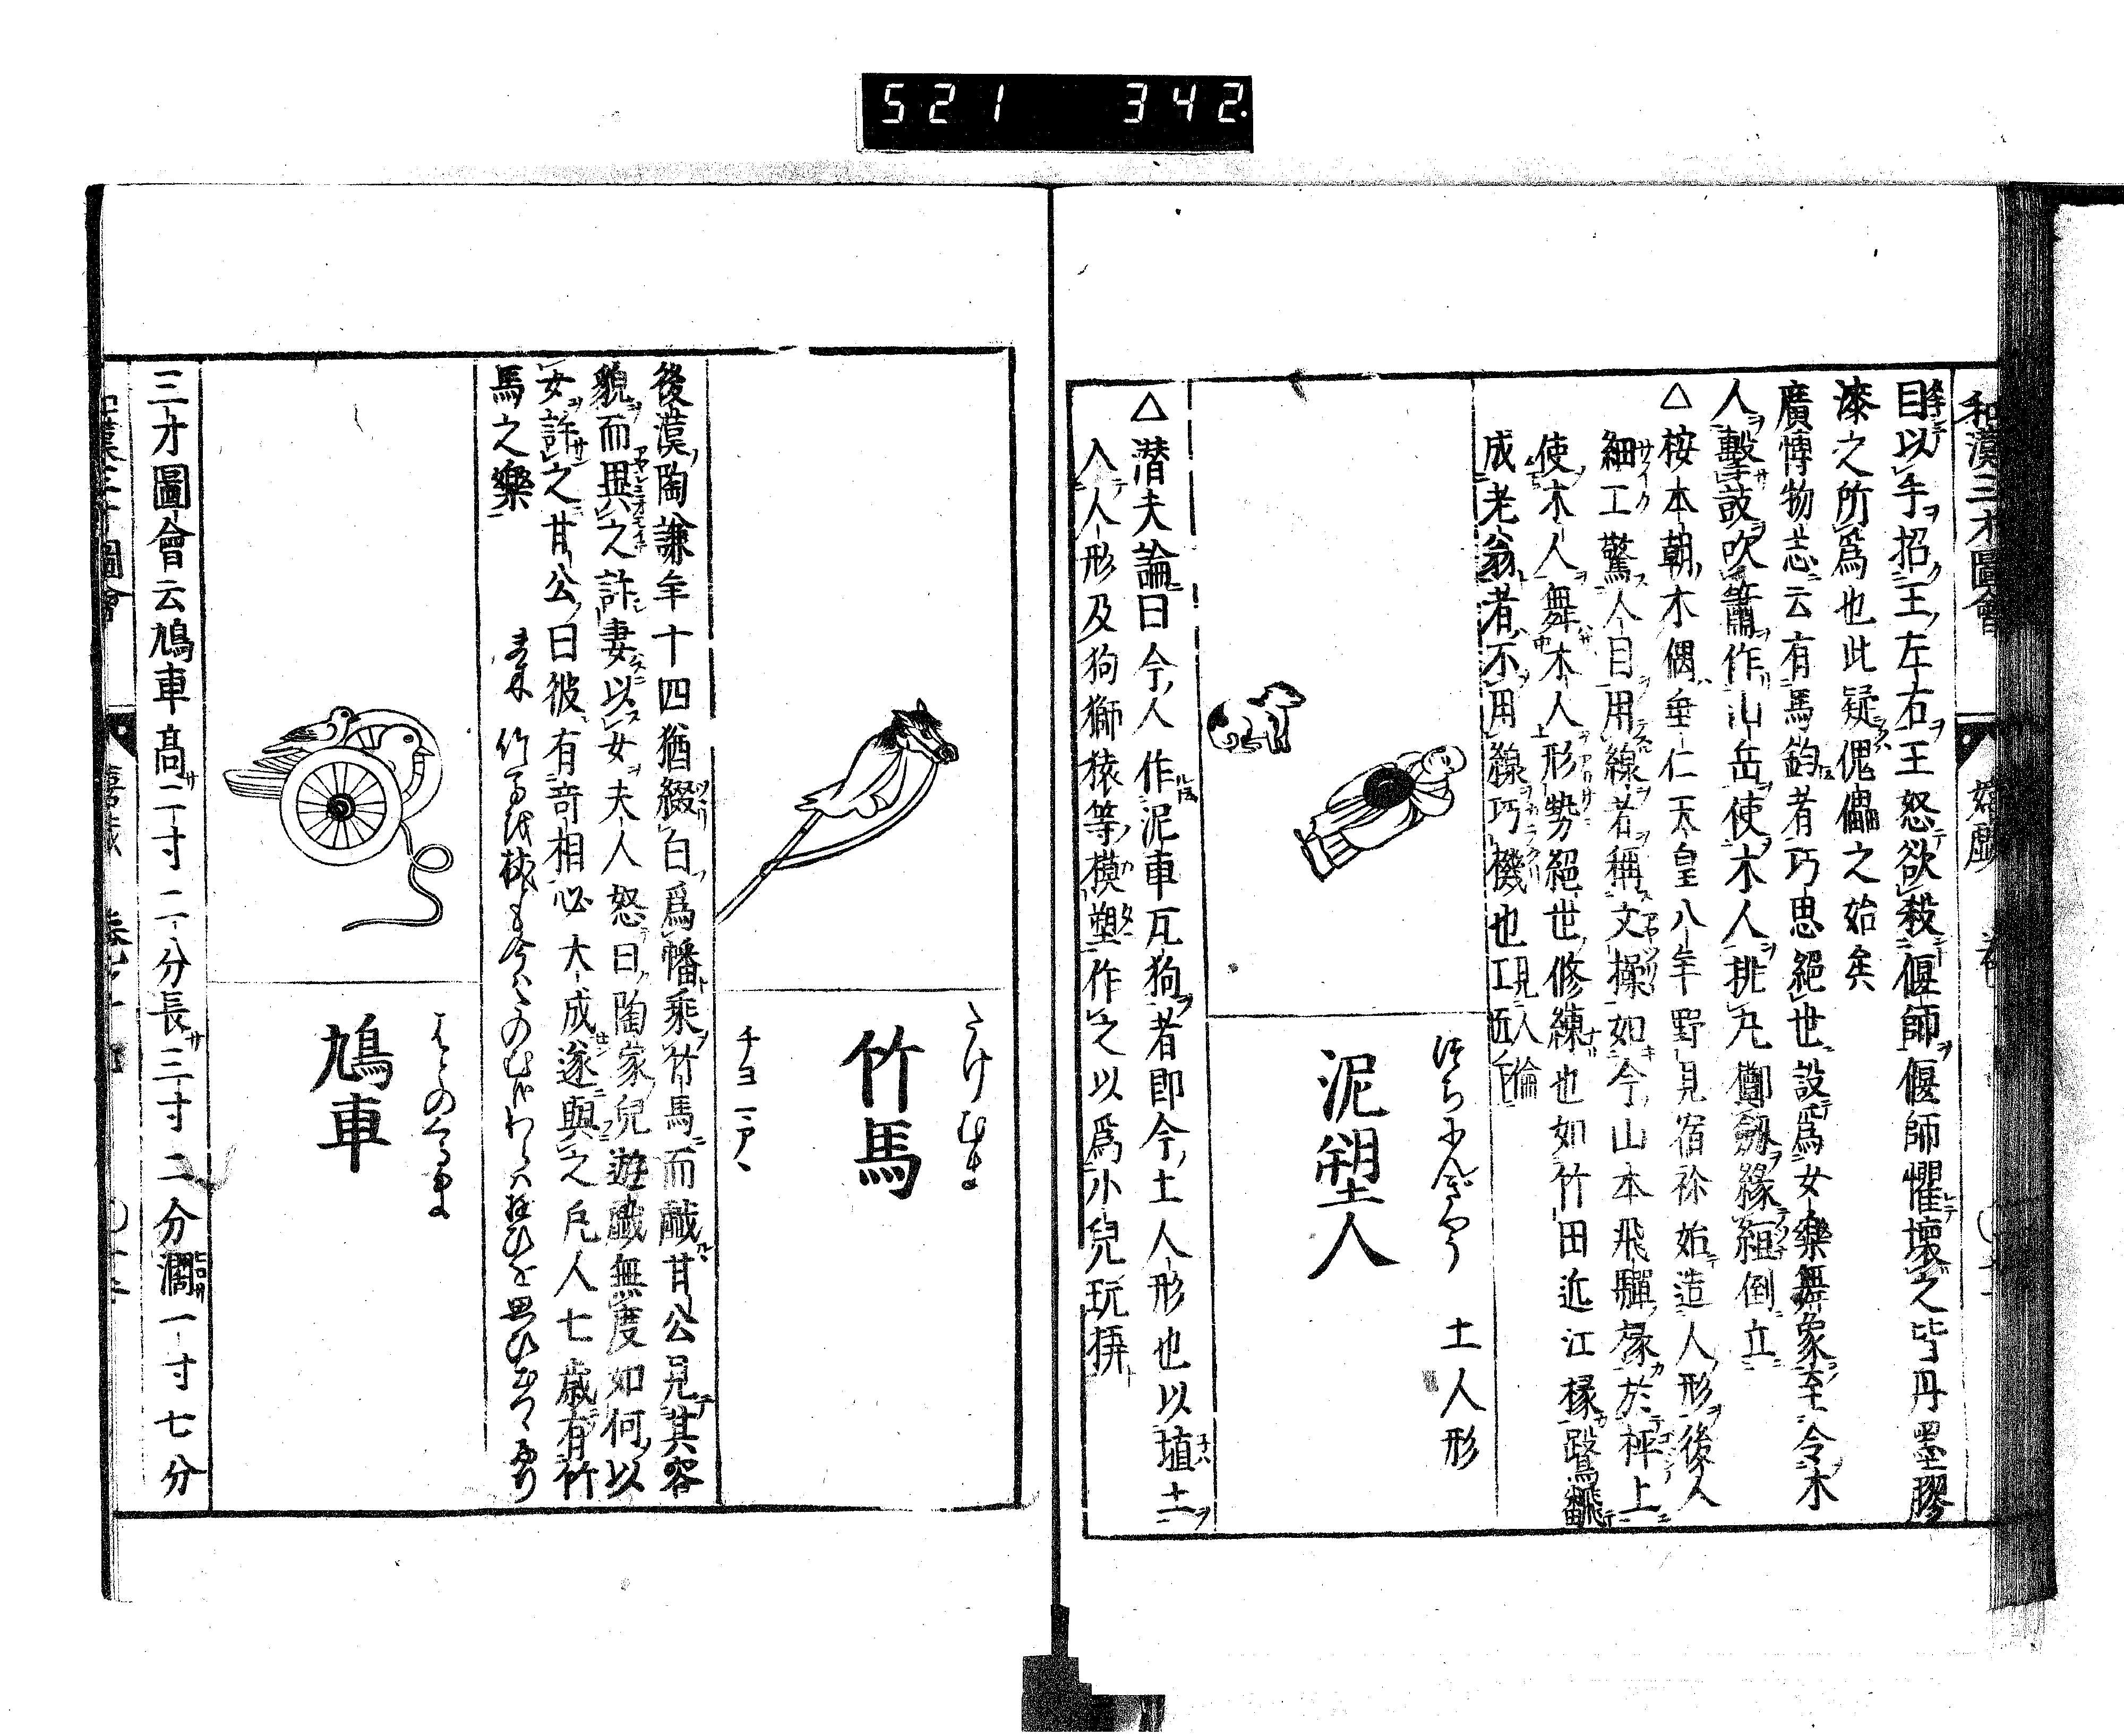 521 342.
和漢三才圖會
嬉戲
目以手招王左右王怒欲殺偃師偃師懼壞之皆丹墨膠
漆之所爲也此疑傀儡之始矣
廣博物志云有馬鈞者巧思絕世設爲女樂舞象至令木
人擊鼓吹簫作山岳使木人排丸擲劔緣絙倒立
△桉本朝木偶垂仁天皇八年野見宿祢始造人形後人
細工驚人目用線者稱文操如今山本飛驒掾於枰上
使木人舞木人形勢絕世修練也如竹田近江掾鷖飜
成老翁者不用線巧機也工匠見人倫
泥塑人
つちにんぎやう
土人形
△潛夫論曰今人作泥車瓦狗者即今土人形也以埴土
入人形及狗獅猿等模塑作之以爲小兒玩捹
竹馬
たけむま
チヨ ミア丶
後漢陶謙年十四猶綴白爲幡乘竹馬而戯甘公見其容
貌而異之許妻以女夫人怒曰陶家兒遊戯無度如何以
女許之甘公曰彼有竒相必大成遂與之凡人七歲有竹
馬之樂
竹馬
鳩車
はとのくるま
三才圖會云鳩車高二寸二分長三寸二分濶一寸七分